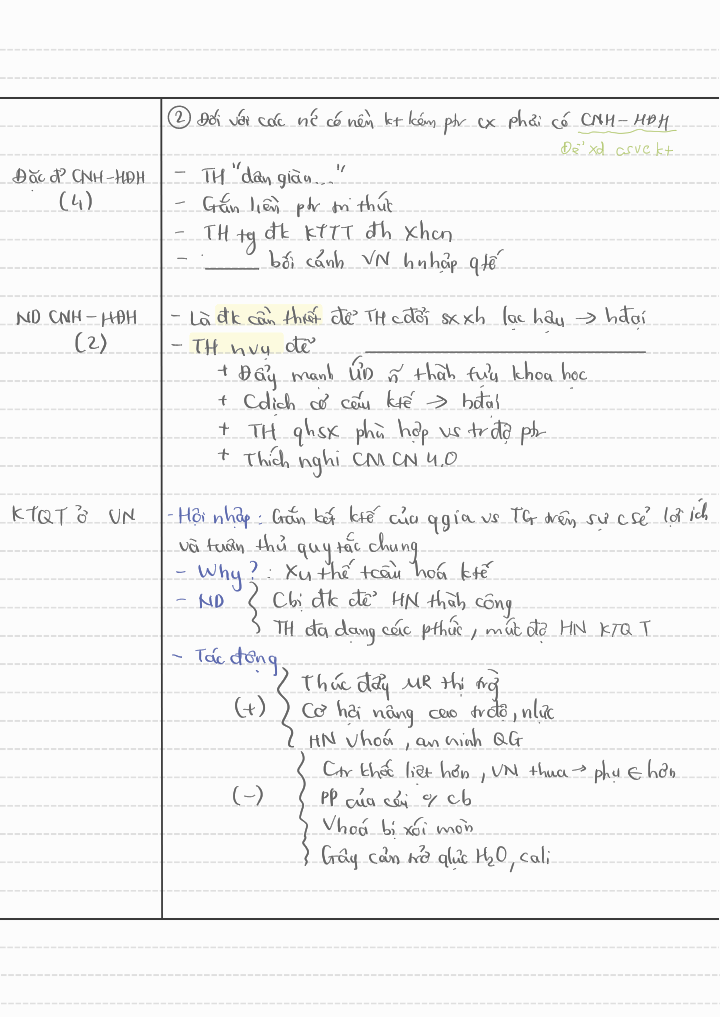 ② Đối với các nc có nền kt kém ptr cx phải có CNH-HĐH
Để xd csvc kt
Đặc đ' CNH-HĐH
(4)
- TH "dân giàu..."
- Gắn liền ptr tri thức
- TH tg đk KTTT đh xhcn
- ______ bối cảnh VN hnhập qtế
ND CNH-HĐH
(2)
- Là đk cần thiết để TH cđổi sx xh lạc hậu → hđại
- TH nvụ để ______
+ Đẩy mạnh ƯD thành tựu khoa học
+ Cdịch cơ cấu ktế → hđại
+ TH qhsx phù hợp vs tr độ ptr
+ Thích nghi CM CN 4.0
KTQT ở VN
- Hội nhập: Gắn kết ktế của qgia vs TG trên sự csẻ lợi ích
và tuân thủ quy tắc chung
- Why?: Xu thế tcầu hoá ktế
- ND { Cbị đk để HN thành công
TH đa dạng các pthức, mức độ HN KTQT
- Tác động
(+) { Thúc đẩy MR thị trg
Cơ hội nâng cao trđộ, nlực
HN vhoá, an ninh QG
(-) { Ctr khốc liệt hơn, VN thua → phụ ∈ hơn
PP của cải cb
Vhoá bị xói mòn
Gây cản trở qlực H₂O,